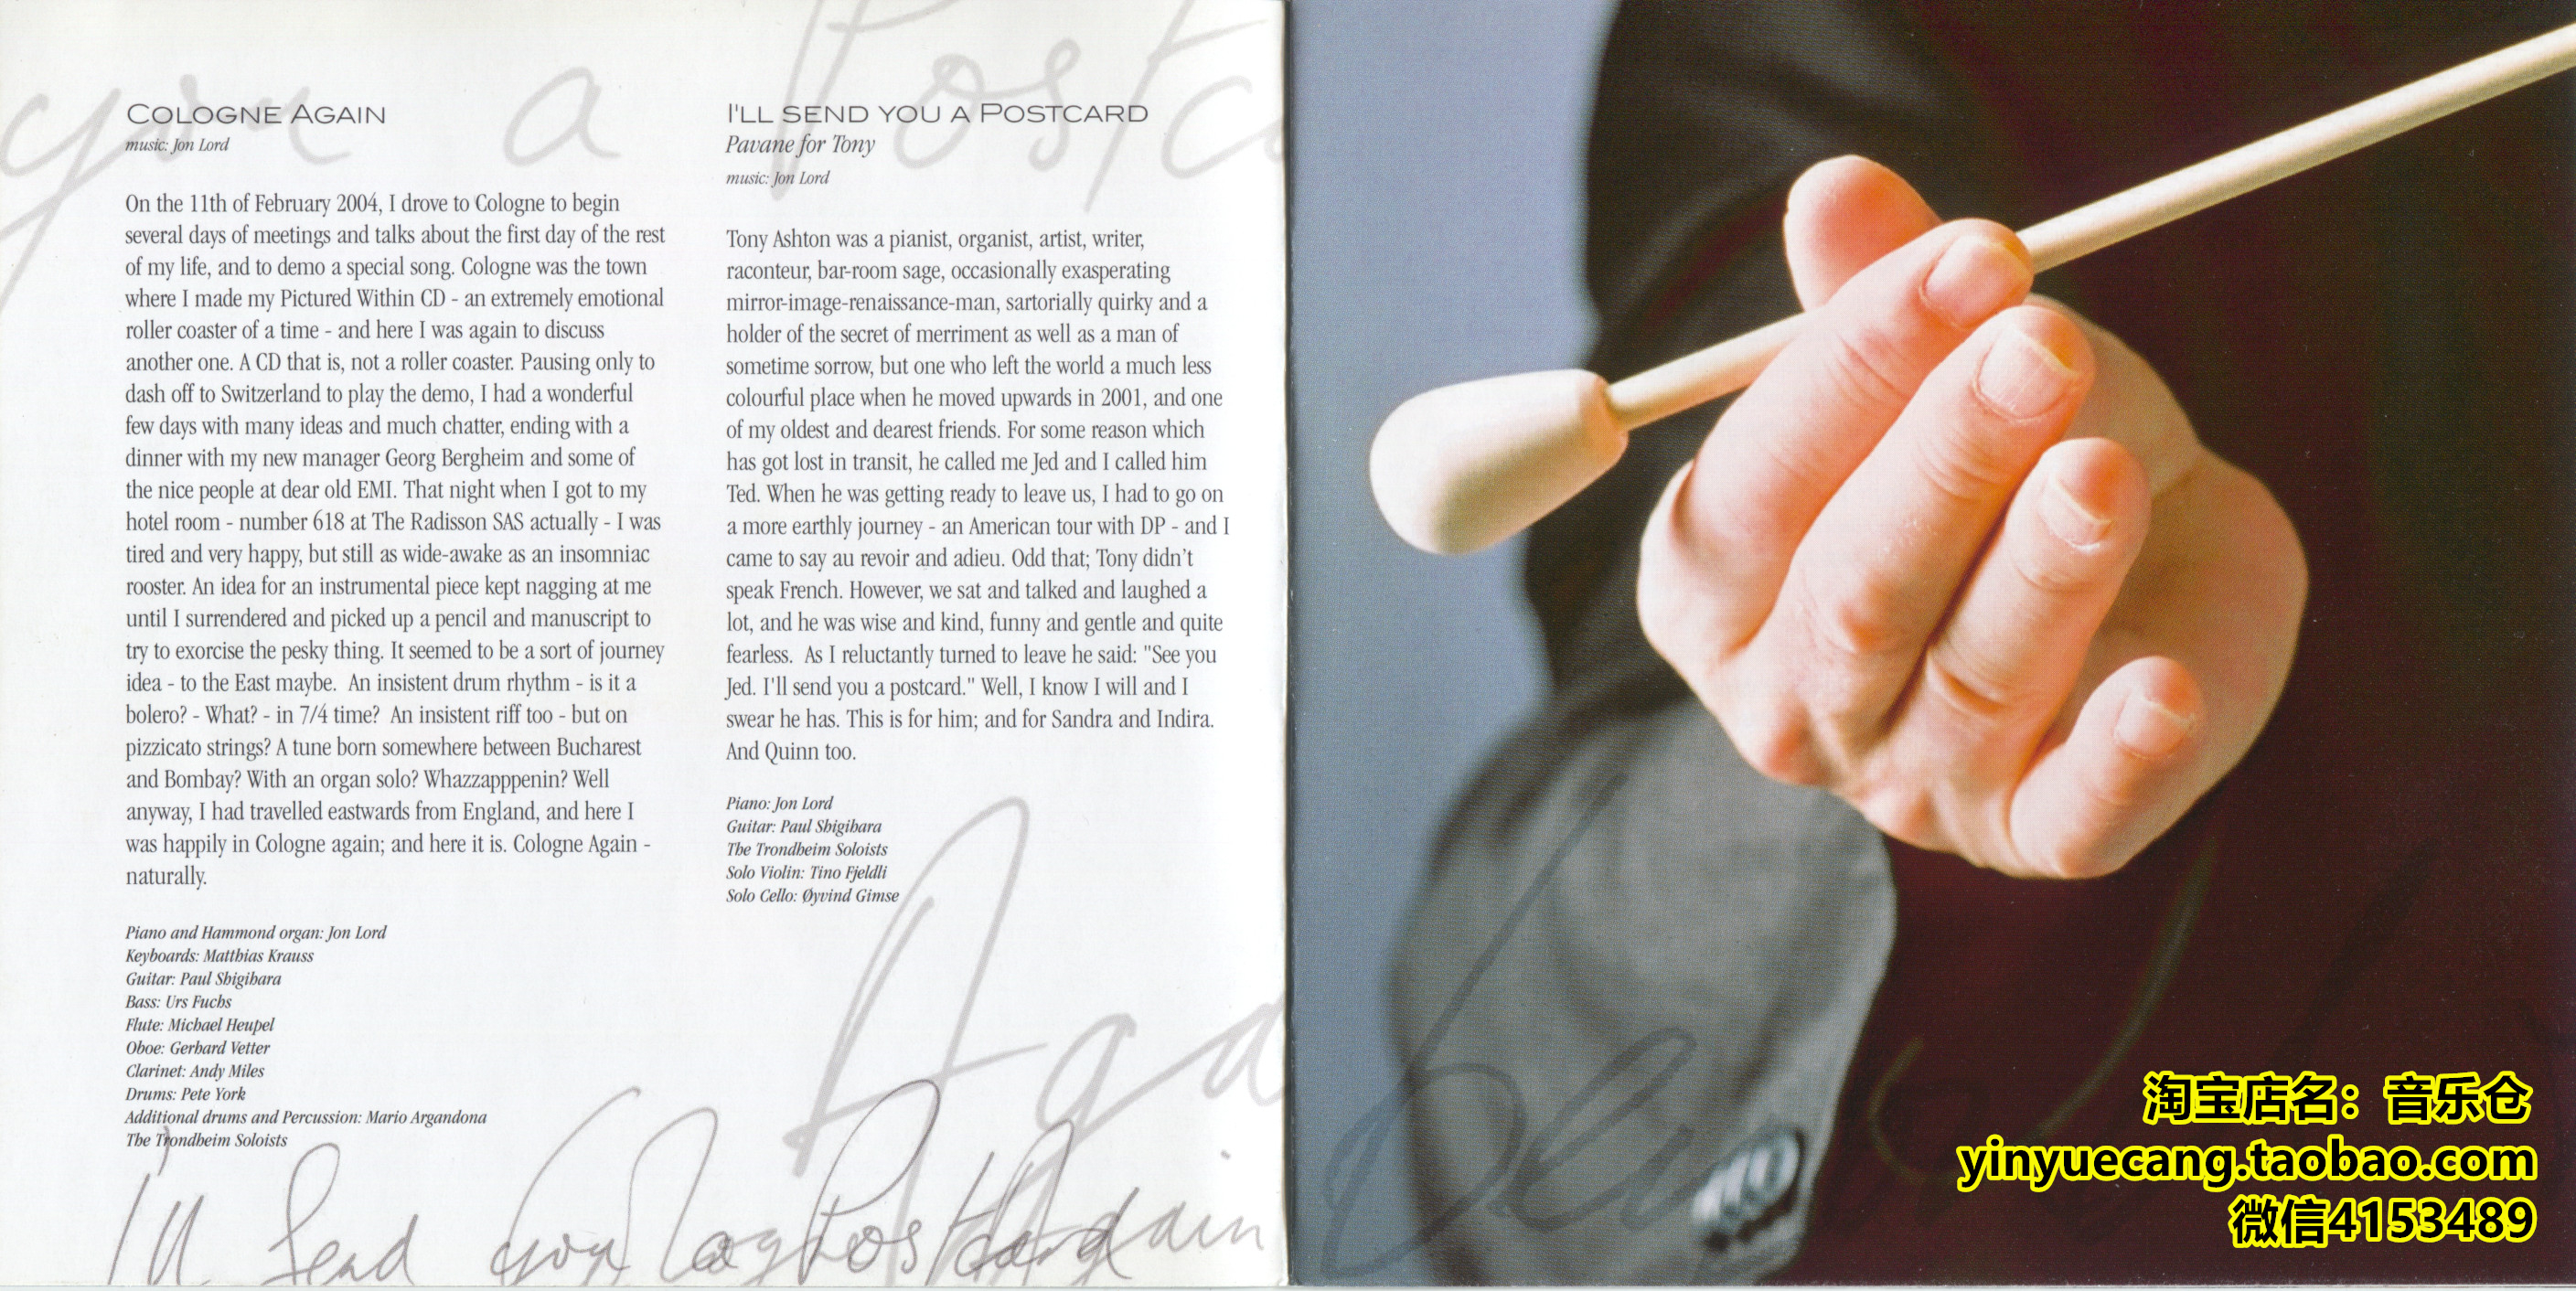 COLOGNE AGAIN
music: Jon Lord
On the 11th of February 2004, I drove to Cologne to begin
several days of meetings and talks about the first day of the rest
of my life, and to demo a special song. Cologne was the town
where I made my Pictured Within CD - an extremely emotional
roller coaster of a time - and here I was again to discuss
another one. A CD that is, not a roller coaster. Pausing only to
dash off to Switzerland to play the demo, I had a wonderful
few days with many ideas and much chatter, ending with a
dinner with my new manager Georg Bergheim and some of
the nice people at dear old EMI. That night when I got to my
hotel room - number 618 at The Radisson SAS actually - I was
tired and very happy, but still as wide-awake as an insomniac
rooster. An idea for an instrumental piece kept nagging at me
until I surrendered and picked up a pencil and manuscript to
try to exorcise the pesky thing. It seemed to be a sort of journey
idea - to the East maybe.  An insistent drum rhythm - is it a
bolero? - What? - in 7/4 time?  An insistent riff too - but on
pizzicato strings? A tune born somewhere between Bucharest
and Bombay? With an organ solo? Whazzapppenin? Well
anyway, I had travelled eastwards from England, and here I
was happily in Cologne again; and here it is. Cologne Again -
naturally.
Piano and Hammond organ: Jon Lord
Keyboards: Matthias Krauss
Guitar: Paul Shigihara
Bass: Urs Fuchs
Flute: Michael Heupel
Oboe: Gerhard Vetter
Clarinet: Andy Miles
Drums: Pete York
Additional drums and Percussion: Mario Argandona
The Trondheim Soloists
I'LL SEND YOU A POSTCARD
Pavane for Tony
music: Jon Lord
Tony Ashton was a pianist, organist, artist, writer,
raconteur, bar-room sage, occasionally exasperating
mirror-image-renaissance-man, sartorially quirky and a
holder of the secret of merriment as well as a man of
sometime sorrow, but one who left the world a much less
colourful place when he moved upwards in 2001, and one
of my oldest and dearest friends. For some reason which
has got lost in transit, he called me Jed and I called him
Ted. When he was getting ready to leave us, I had to go on
a more earthly journey - an American tour with DP - and I
came to say au revoir and adieu. Odd that; Tony didn't
speak French. However, we sat and talked and laughed a
lot, and he was wise and kind, funny and gentle and quite
fearless.  As I reluctantly turned to leave he said: "See you
Jed. I'll send you a postcard." Well, I know I will and I
swear he has. This is for him; and for Sandra and Indira.
And Quinn too.
Piano: Jon Lord
Guitar: Paul Shigihara
The Trondheim Soloists
Solo Violin: Tino Fjeldli
Solo Cello: Øyvind Gimse
you a Postca
Aga
I'll Send you a Postcard
Again
淘宝店名：音乐仓
yinyuecang.taobao.com
微信4153489